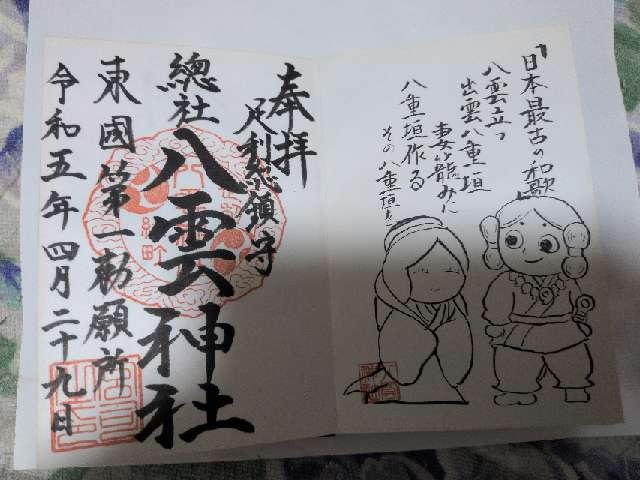 「日本最古の和歌」
八雲立つ
出雲八重垣
妻籠みに
八重垣作る
その八重垣を
奉拝
足利總鎮守
總社
八雲神社
東國第一勅願所
令和五年四月二十九日